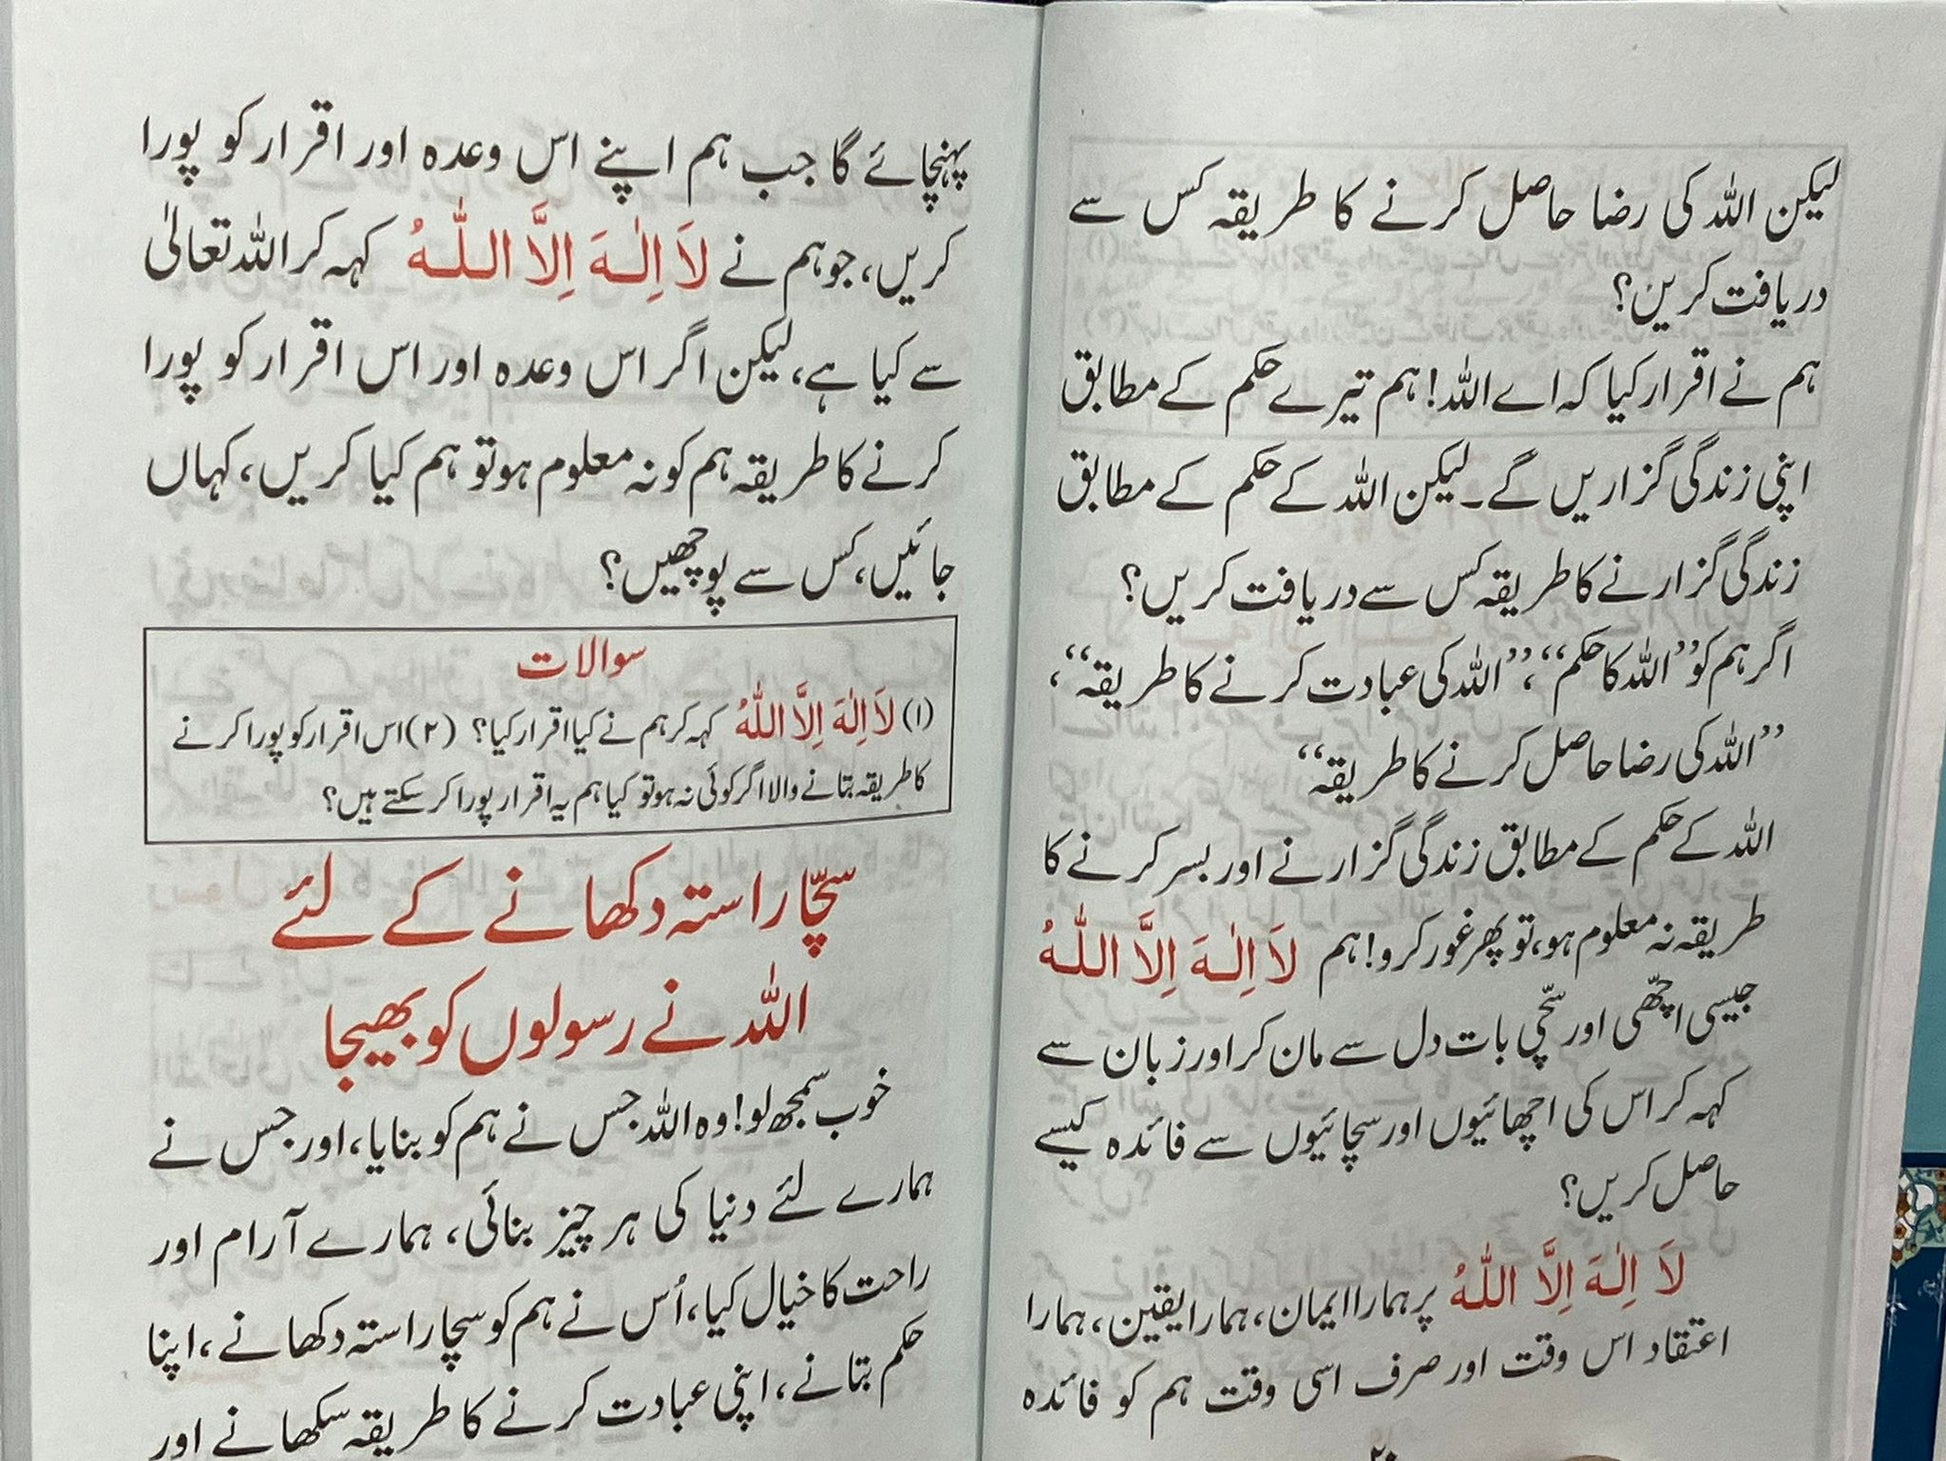 لیکن اللہ کی رضا حاصل کرنے کا طریقہ کس سے
دریافت کریں؟
ہم نے اقرار کیا کہ اے اللہ! ہم تیرے حکم کے مطابق
اپنی زندگی گزاریں گے۔ لیکن اللہ کے حکم کے مطابق
زندگی گزارنے کا طریقہ کس سے دریافت کریں؟
اگر ہم کو ”اللہ کا حکم“، ”اللہ کی عبادت کرنے کا طریقہ“،
”اللہ کی رضا حاصل کرنے کا طریقہ“
اللہ کے حکم کے مطابق زندگی گزارنے اور بسر کرنے کا
طریقہ نہ معلوم ہو، تو پھر غور کرو! ہم لَا اِلٰـهَ اِلَّا اللّٰـهُ
جیسی اچھّی اور سچّی بات دل سے مان کر اور زبان سے
کہہ کر اس کی اچھائیوں اور سچائیوں سے فائدہ کیسے
حاصل کریں؟
لَا اِلٰـهَ اِلَّا اللّٰهُ پر ہمارا ایمان، ہمارا یقین، ہمارا
اعتقاد اس وقت اور صرف اسی وقت ہم کو فائدہ
۲۰
پہنچائے گا جب ہم اپنے اس وعدہ اور اقرار کو پورا
کریں، جو ہم نے لَا اِلٰـهَ اِلَّا اللّٰـهُ کہہ کر اللہ تعالیٰ
سے کیا ہے، لیکن اگر اس وعدہ اور اس اقرار کو پورا
کرنے کا طریقہ ہم کو نہ معلوم ہو تو ہم کیا کریں، کہاں
جائیں، کس سے پوچھیں؟
سوالات
(۱) لَا اِلٰهَ اِلَّا اللّٰهُ کہہ کر ہم نے کیا اقرار کیا؟ (۲) اس اقرار کو پورا کرنے
کا طریقہ بتانے والا اگر کوئی نہ ہو تو کیا ہم یہ اقرار پورا کر سکتے ہیں؟
سچّا راستہ دکھانے کے لئے
اللہ نے رسولوں کو بھیجا
خوب سمجھ لو! وہ اللہ جس نے ہم کو بنایا، اور جس نے
ہمارے لئے دنیا کی ہر چیز بنائی، ہمارے آرام اور
راحت کا خیال کیا، اُس نے ہم کو سچا راستہ دکھانے، اپنا
حکم بتانے، اپنی عبادت کرنے کا طریقہ سکھانے اور